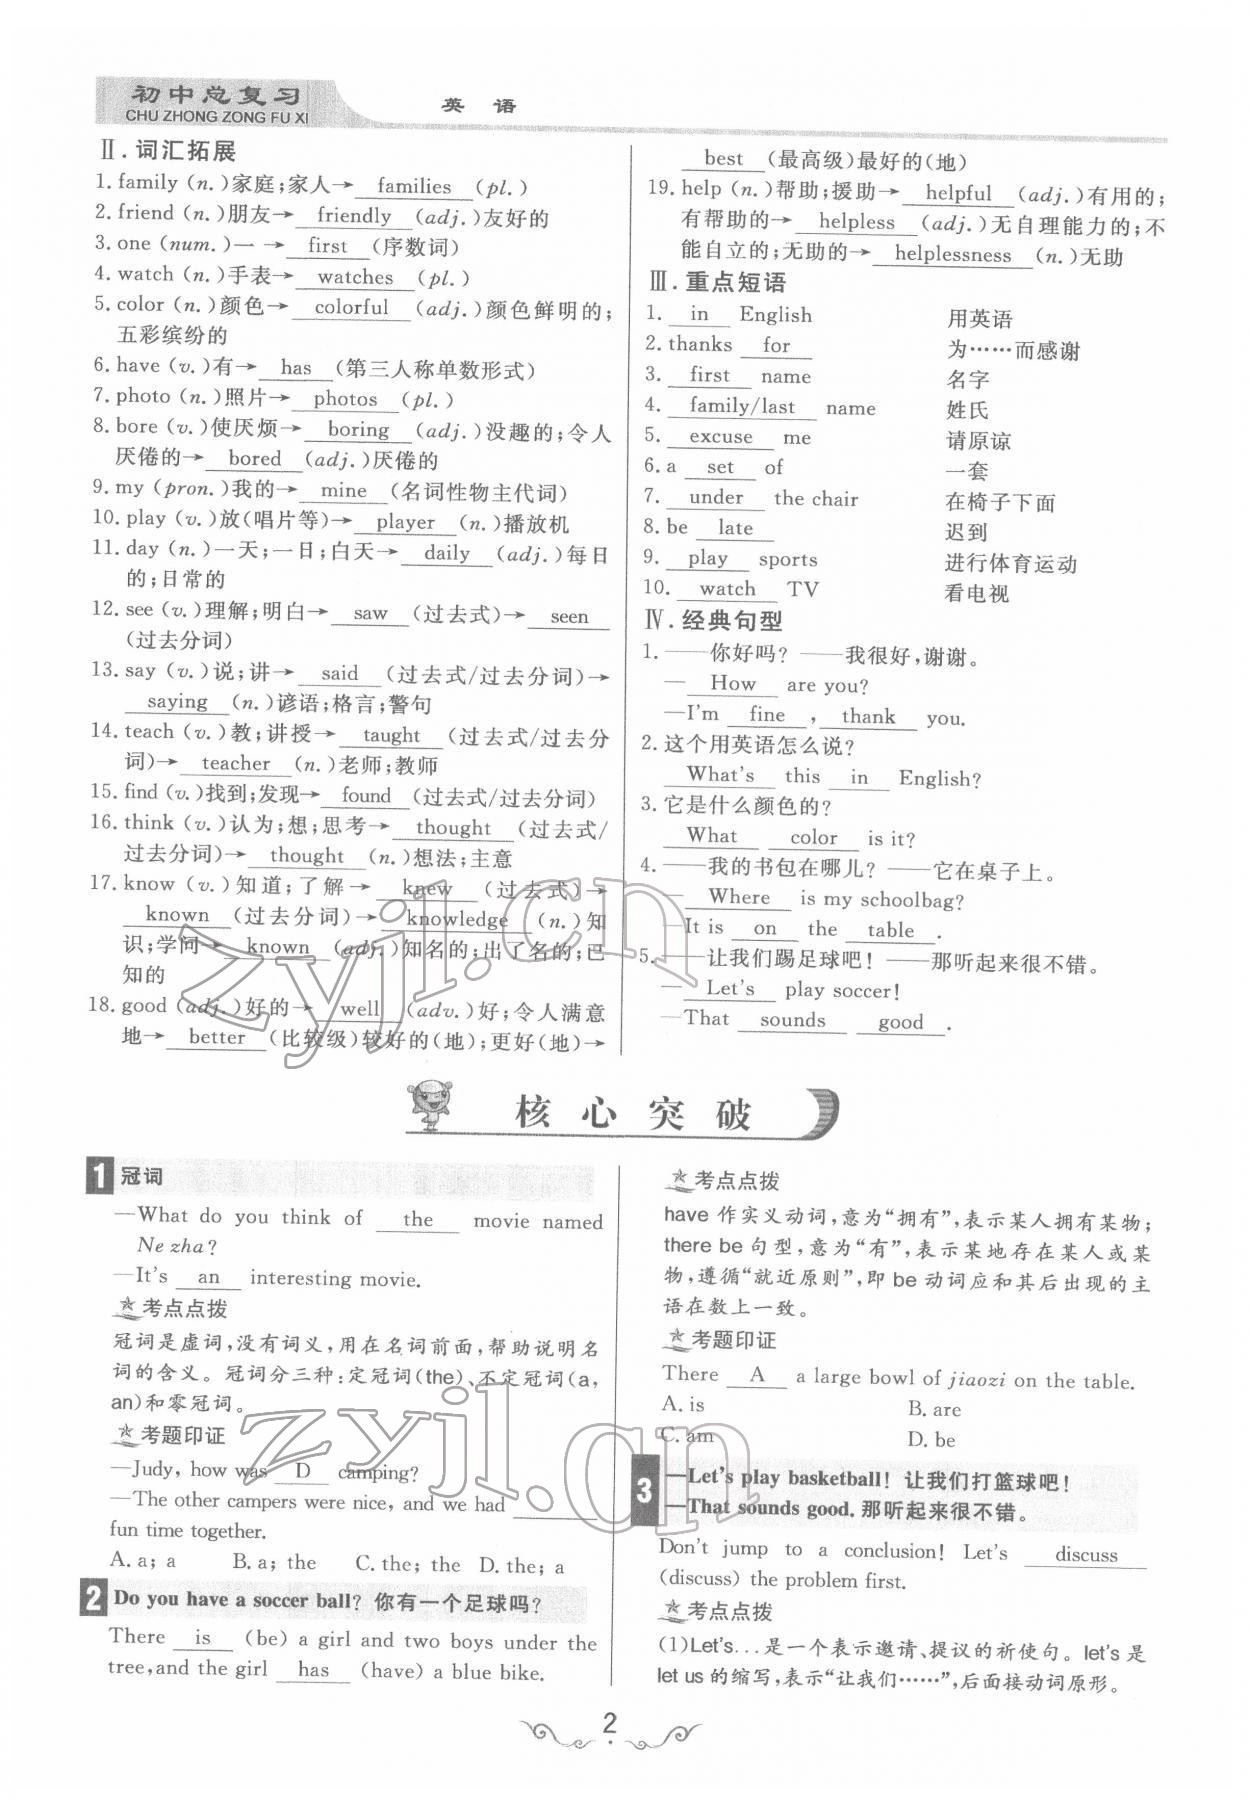 初中总复习
CHU ZHONG ZONG FU XI
英 语
Ⅱ.词汇拓展
1. family (n.)家庭;家人→ families (pl.)
2. friend (n.)朋友→ friendly (adj.)友好的
3. one (num.)一 → first (序数词)
4. watch (n.)手表→ watches (pl.)
5. color (n.)颜色→ colorful (adj.)颜色鲜明的;
五彩缤纷的
6. have (v.)有→ has (第三人称单数形式)
7. photo (n.)照片→ photos (pl.)
8. bore (v.)使厌烦→ boring (adj.)没趣的;令人
厌倦的→ bored (adj.)厌倦的
9. my (pron.)我的→ mine (名词性物主代词)
10. play (v.)放(唱片等)→ player (n.)播放机
11. day (n.)一天;一日;白天→ daily (adj.)每日
的;日常的
12. see (v.)理解;明白→ saw (过去式)→ seen
(过去分词)
13. say (v.)说;讲→ said (过去式/过去分词)→
saying (n.)谚语;格言;警句
14. teach (v.)教;讲授→ taught (过去式/过去分
词)→ teacher (n.)老师;教师
15. find (v.)找到;发现→ found (过去式/过去分词)
16. think (v.)认为;想;思考→ thought (过去式/
过去分词)→ thought (n.)想法;主意
17. know (v.)知道;了解→ knew (过去式)→
known (过去分词)→ knowledge (n.)知
识;学问→ known (adj.)知名的;出了名的;已
知的
18. good (adj.)好的→ well (adv.)好;令人满意
地→ better (比较级)较好的(地);更好(地)→
best (最高级)最好的(地)
19. help (n.)帮助;援助→ helpful (adj.)有用的;
有帮助的→ helpless (adj.)无自理能力的;不
能自立的;无助的→ helplessness (n.)无助
Ⅲ.重点短语
1. in English 用英语
2. thanks for 为……而感谢
3. first name 名字
4. family/last name 姓氏
5. excuse me 请原谅
6. a set of 一套
7. under the chair 在椅子下面
8. be late 迟到
9. play sports 进行体育运动
10. watch TV 看电视
Ⅳ.经典句型
1. ——你好吗? ——我很好,谢谢。
—How are you?
—I'm fine , thank you.
2. 这个用英语怎么说?
What's this in English?
3. 它是什么颜色的?
What color is it?
4. ——我的书包在哪儿? ——它在桌子上。
—Where is my schoolbag?
—It is on the table .
5. ——让我们踢足球吧! ——那听起来很不错。
—Let's play soccer!
—That sounds good .
核心突破
1 冠词
—What do you think of the movie named
Ne zha?
—It's an interesting movie.
考点点拨
冠词是虚词,没有词义,用在名词前面,帮助说明名
词的含义。冠词分三种:定冠词(the)、不定冠词(a,
an)和零冠词。
考题印证
—Judy, how was D camping?
—The other campers were nice, and we had ______
fun time together.
A. a; a B. a; the C. the; the D. the; a
2 Do you have a soccer ball? 你有一个足球吗?
There is (be) a girl and two boys under the
tree,and the girl has (have) a blue bike.
考点点拨
have 作实义动词,意为“拥有”,表示某人拥有某物;
there be 句型,意为“有”,表示某地存在某人或某
物,遵循“就近原则”,即 be 动词应和其后出现的主
语在数上一致。
考题印证
There A a large bowl of jiaozi on the table.
A. is B. are
C. am D. be
3 —Let's play basketball! 让我们打篮球吧!
—That sounds good. 那听起来很不错。
Don't jump to a conclusion! Let's discuss
(discuss) the problem first.
考点点拨
(1)Let's...是一个表示邀请、提议的祈使句。let's是
let us的缩写,表示“让我们……”,后面接动词原形。
2
zyjl.cn
zyjl.cn